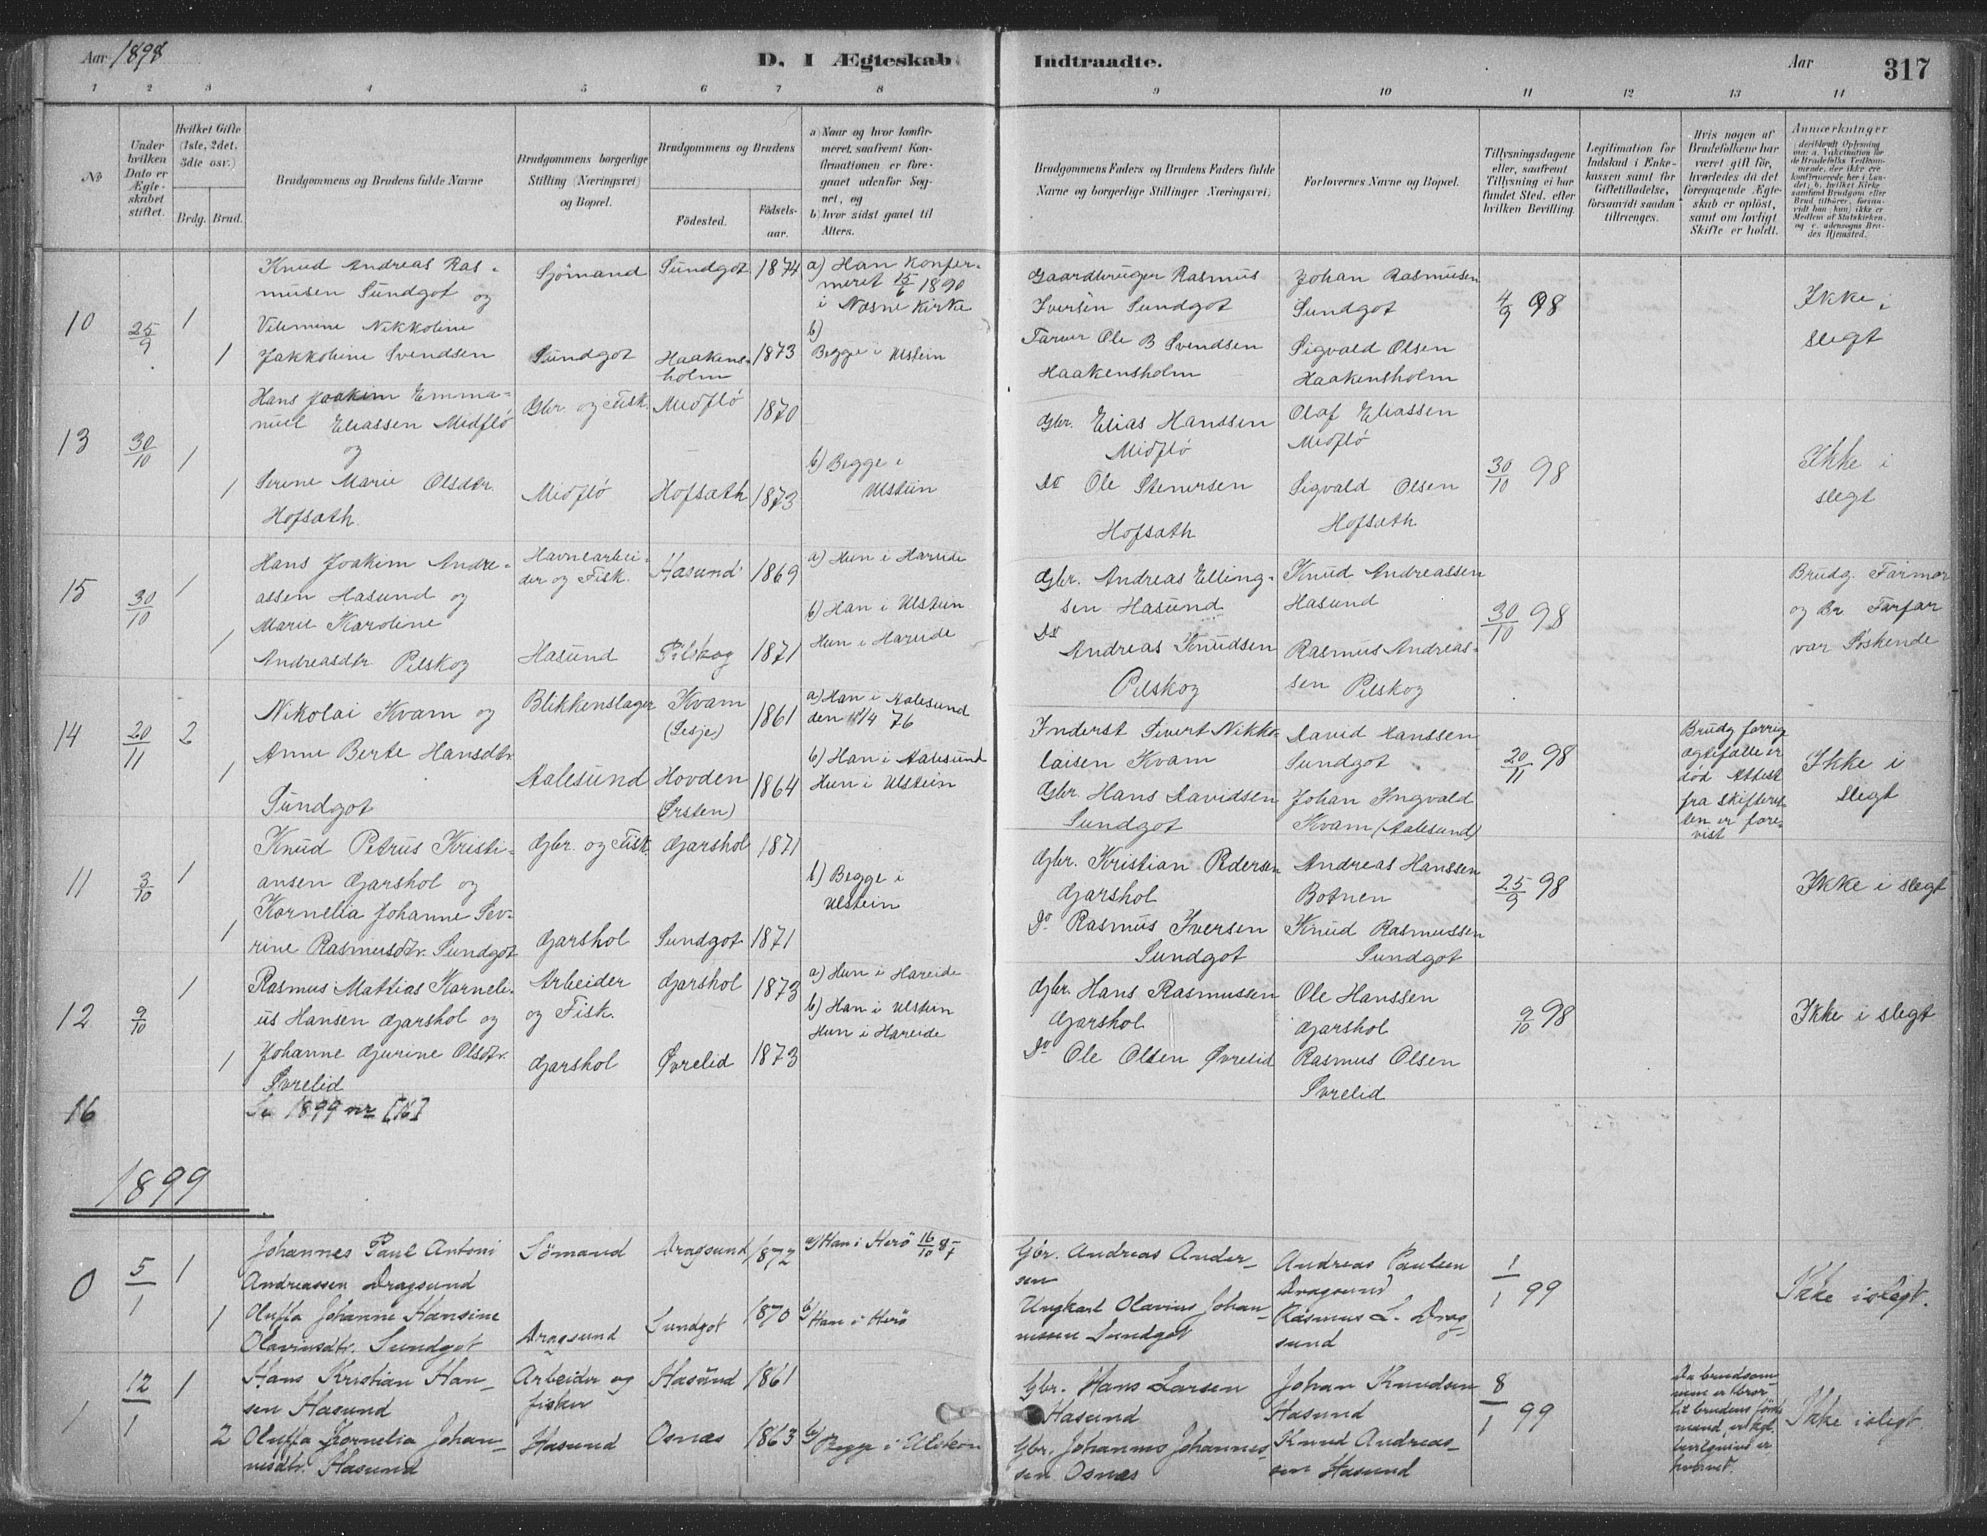 Aar 1898
D. 1 Ægteskab Indtraadte.
Aar
317
1 2 3 4 5 6 7 8 9 10 11 12 13 14
No
Under hvilken Dato er Ægteskabet stiftet.
Hvilket Gifte (1ste, 2det, 3die osv.)
Brdg. Brud.
Brudgommens og Brudens fulde Navne
Brudgommens borgerlige Stilling (Næringsvei) og Bopæl.
Brudgommens og Brudens
Födested.
Födselsaar.
a) Naar og hvor konfirmeret, saafremt Konfirmationen er foregaaet udenfor Sognet, og
b) hvor sidst gaaet til Alters.
Brudgommens Faders og Brudens Faders fulde Navne og borgerlige Stillinger (Næringsvei).
Forlovernes Navne og Bopæl.
Tillysningsdagene eller, saafremt Tillysning ei har fundet Sted, efter hvilken Bevilling.
Legitimation for Indskud i Enkekassen samt for Giftetilladelse, forsaavidt saadan tiltrænges.
Hvis nogen af Brudefolkene har været gift för, hvorledes da det foregaaende Ægteskab er oplöst, samt om lovligt Skifte er holdt.
Anmærkninger
10
25/9
1
1
Knud Andreas Ras-
musen Sundgot og
Vilemine Nikkoline
Jakkobine Svendsen
Sjömand
Sundgot
Sundgot
Haakens-
holm
1874
1873
a) Han konfir-
meret 15/6 1890
i Næsne kirke
b)
Begge i Ulstein
Gaardbruger Rasmus
Iversen Sundgot
Farver Ole B Svendsen
Haakensholm
Johan Rasmusen
Sundgot
Sigvald Olsen
Haakensholm
4/9 98
Ikke i
slegt
13
30/10
1
1
Hans Joakim Emma-
nuel Eliassen Midflö
og
Serine Marie Olsdtr.
Hofsæth.
Gbr. og Fisk.
Midflö
Midflö
Hofsæth
1870
1873
b) Begge i
Ulstein
Gbr. Elias Hanssen
Midflö
Do Ole Stenersen
Hofsæth
Olaf Eliassen
Midflö
Sigvald Olsen
Hofsæth
30/10 98
Ikke i
slegt
15
30/10
1
1
Hans Joakim Andre-
assen Hasund og
Marie Karoline
Andreasdtr Pilskog
Havnearbei-
der og Fisk.
Hasund
Hasund
Pilskog
1869
1871
a) Hun i Hareide
b) Han i Ulstein
Hun i Hareide
Gbr. Andreas Elling-
sen Hasund
Do
Andreas Knudsen
Pilskog
Knud Andreassen
Hasund
Rasmus Andreas-
sen Pilskog
30/10 98
Brudg. Farmor
og Br Farfar
var Söskende
14
20/11
2
1
Nikolai Kvam og
Anne Berte Hansdtr.
Sundgot
Blikkenslager
Aalesund
Kvam
(Lesje)
Hovden
(Ørsten)
1861
1864
a) Han i Aalesund
b) Han i Aalesund
Hun i Ulstein
Inderst Sivert Nikko-
laisen Kvam
Gbr. Hans Davidsen
Sundgot
David Hanssen
Sundgot
Johan Ingvald
Kvam (Aalesund)
20/11 98
Brudg forrige
ægtefælle er
död Attest
fra skifteret-
ten er fore-
vist
Ikke i
slegt
11
3/10
1
1
Knud Petrus Kristi-
ansen Garshol og
Kornelia Johanne Sev-
rine Rasmusdtr. Sundgot
Gbr. og Fisk.
Garshol
Garshol
Sundgot
1871
1871
b) Begge i
Ulstein
Gbr. Kristian Pedersen
Garshol
Do Rasmus Iversen
Sundgot
Andreas Hanssen
Botnen
Knud Rasmussen
Sundgot
25/9 98
Ikke i slegt
12
9/10
1
1
Rasmus Mattias Korneli-
us Hansen Garshol og
Johanne Gurine Olsdtr.
Øvrelid
Arbeider
og Fisk.
Garshol
Garshol
Øvrelid
1873
1873
a) Hun i Hareide
b) Han i Ulstein
Hun i Hareide
Gbr. Hans Rasmussen
Garshol
Do Ole Olsen Øvrelid
Ole Hanssen
Garshol
Rasmus Olsen
Øvrelid
9/10 98
Ikke i slegt
16
Se 1899 nr [16]
1899
0
5/1
1
1
Johannes Paul Antoni
Andreassen Dragsund
Oluffa Johanne Hansine
Olavinsdtr. Sundgot
Sömand
Dragsund
Dragsund
Sundgot
1872
1870
a) Han i Herö 16/10 87
b)
Han i Herö
Gbr. Andreas Ander-
sen
Ungkarl Olavius Johan-
nessen Sundgot
Andreas Paulsen
Dragsund
Rasmus L. Drag-
sund
1/1 99
Ikke i slegt.
1
12/1
1
2
Hans Kristian Han-
sen Hasund
Oluffa Kornelia Johan-
nesdtr. Hasund
Arbeider og
fisker
Hasund
Hasund
Osnæs
1861
1863
b)
Begge i Ulstein
Gbr. Hans Larsen
Hasund
Gbr. Johannes Johannes-
sen Osnæs
Johan Knudsen
Hasund
Knud Andreas-
sen Hasund
8/1 99
Da brudgom-
men er bror
til brudens förste
mand, er kgl.
bevilgning er-
hvervet.
Ikke i slegt.